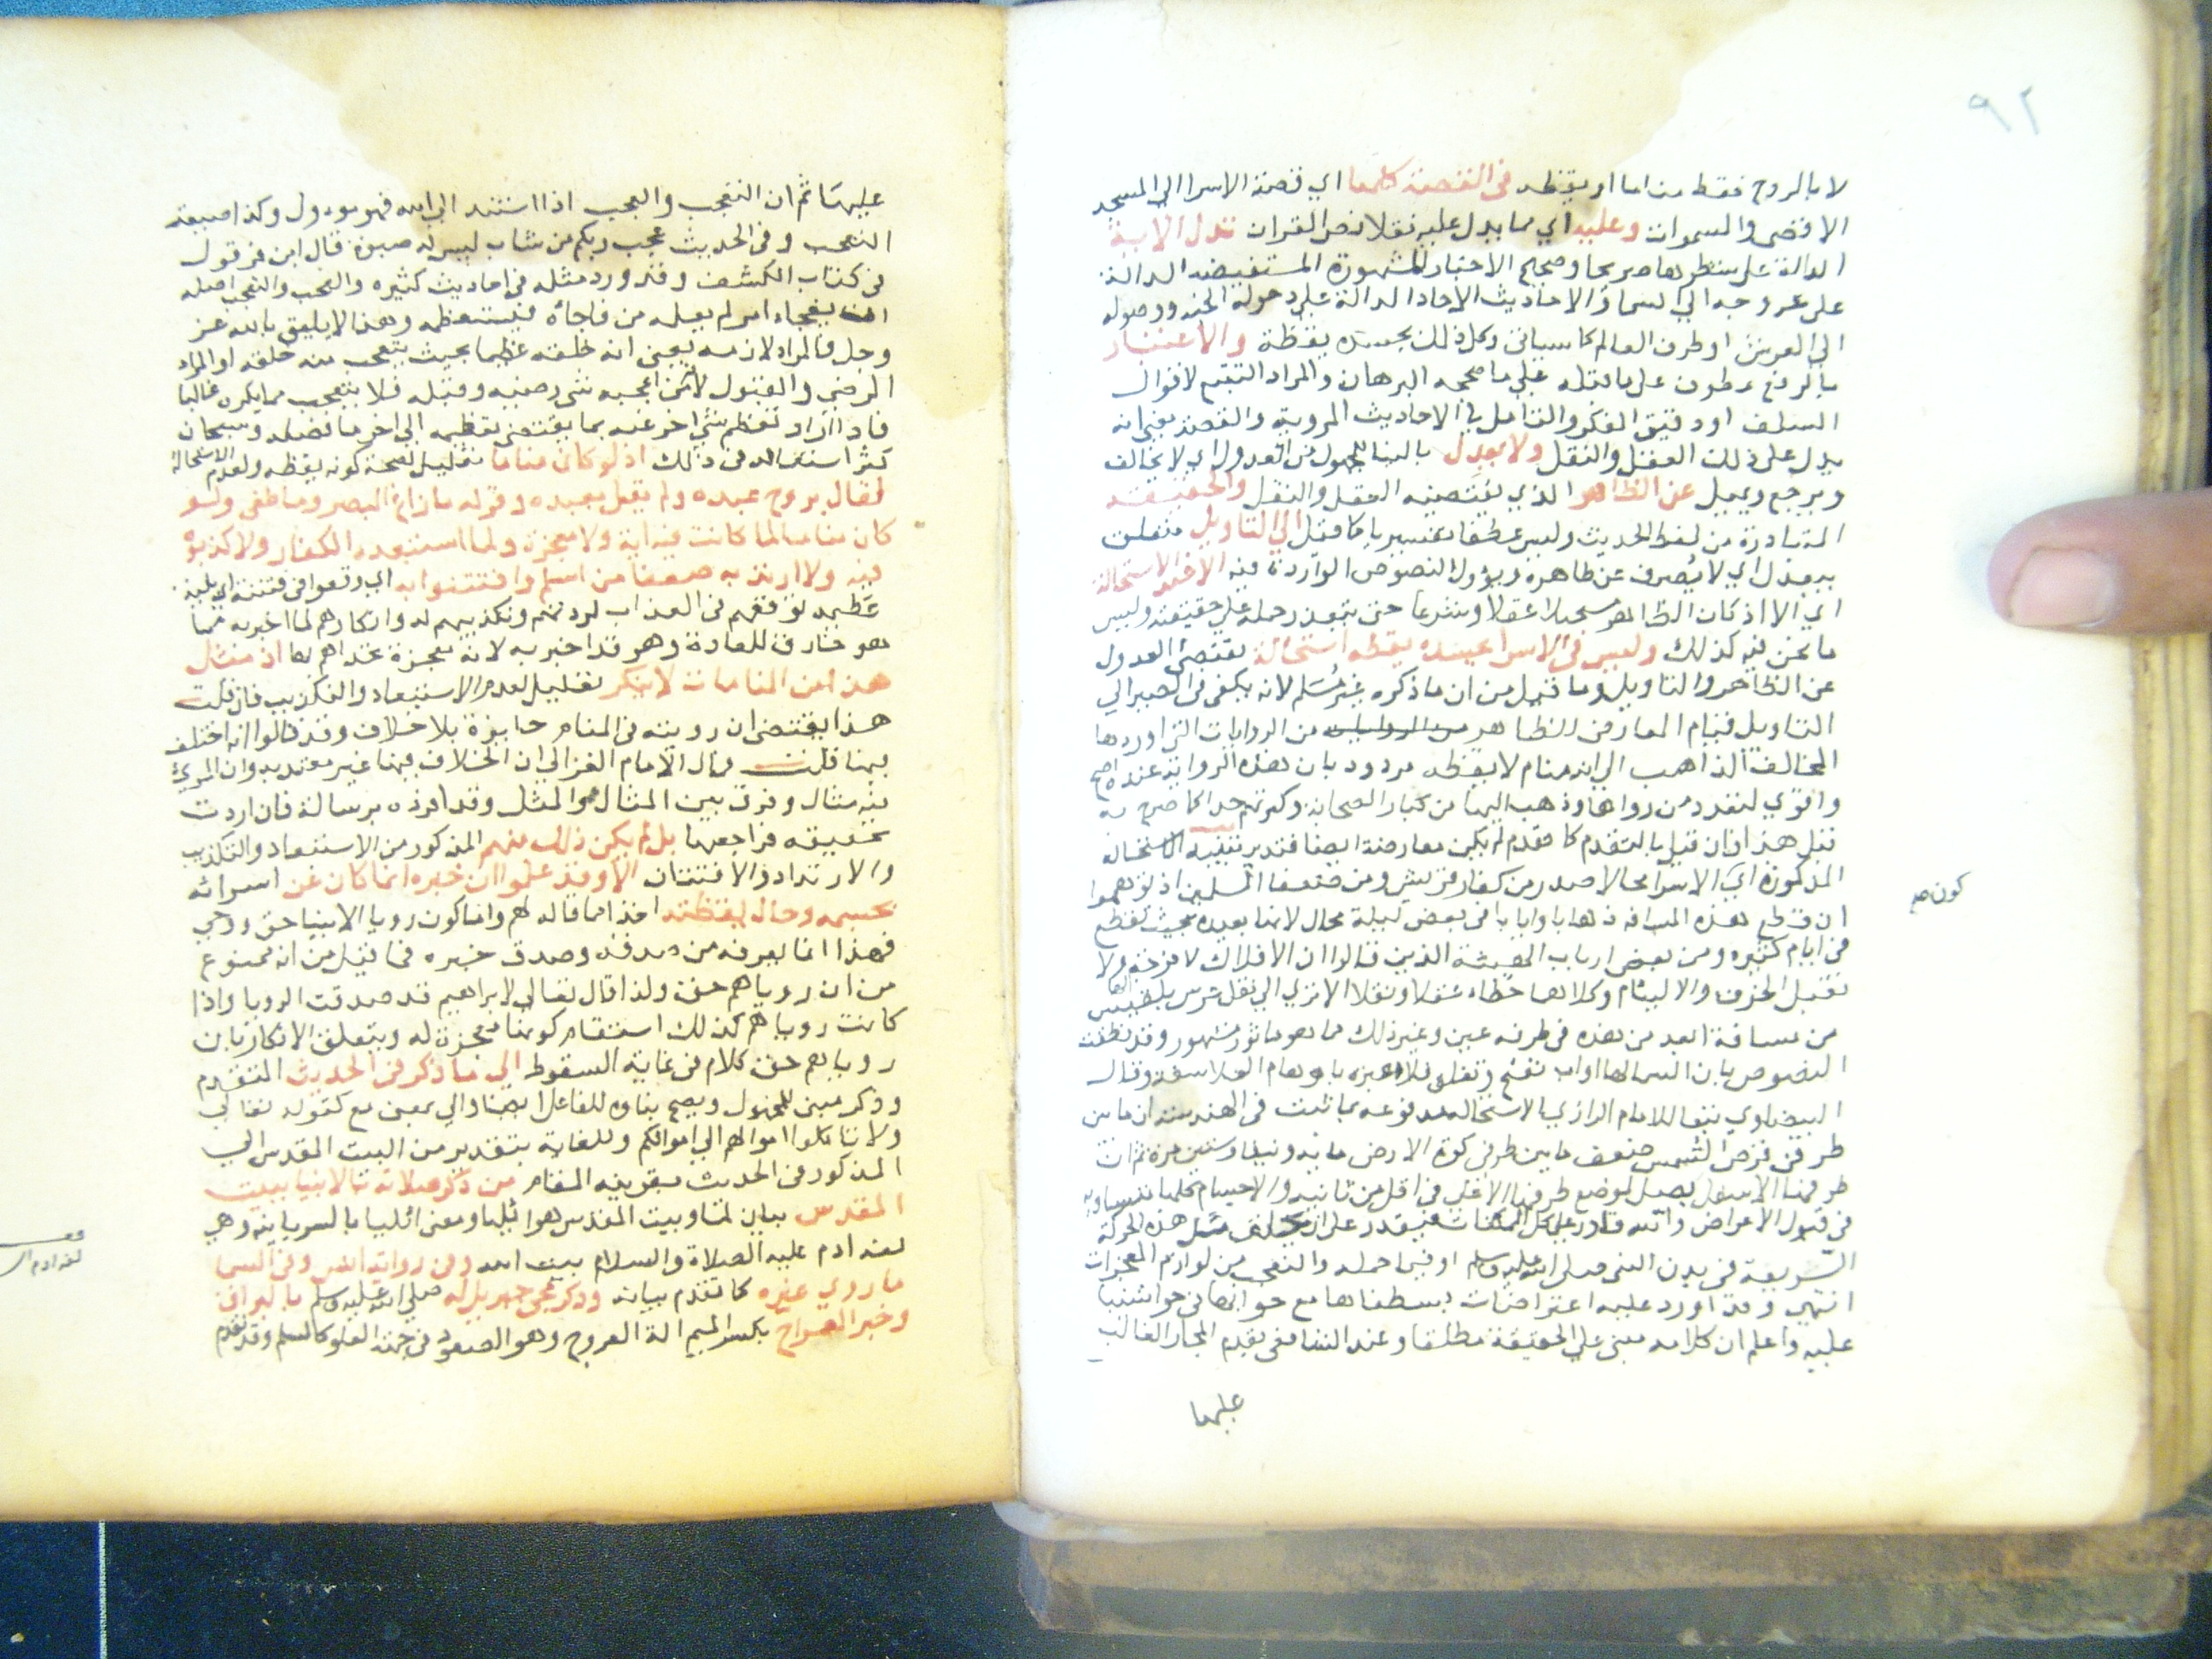 ٩٢
لا بالروح فقط مناما او يقظه في القصة كلها اي قصة الاسرا الي المسجد
الاقصى والسموات وعليه اي مما يدل عليه نقلا نص القران تدل الاية
الدالة على شطرها صريحا وصحيح الاخبار المشهورة المستفيضه الدالة
على عروجه الي السما والاحاديث الاحاد الدالة علي دخوله الجنه ووصوله
الي العرش او طرف العالم كما سياتى وكل ذلك بجسده يقظة والاعتبار
بالرفع عطوف على ما قبله علي ما صححه البرهان والمراد التتبع لاقوال
السلف او دقيق الفكر والتامل في الاحاديث المروية والقصة يعني انه
يدل على ذلك العقل والنقل ولا يعدل بالبنا للمجهول من العدول اي لا يخالف
ويرجع ويميل عن الظاهر الذي يقتضيه العقل والنقل والحقيقة
المتبادرة من لفظ الحديث وليس عطفا تفسيريا كما قيل الي التاويل متعلق
بيعدل اي لا يُصرف عن ظاهره ويؤول النصوص الواردة فيه الا عند الاستحالة
اي الا اذ كان الظاهر مستحيلا عقلا وشرعا حتى يتعذر حمله علي حقيقته وليس
ما نحن فيه كذلك وليس في الاسرا بجسده يقظه استحالة تقتضي العدول
عن الظاهر والتاويل وما قيل من ان ما ذكره غير مُسَلم لانه يكفى فى المصير الي
التاويل قيام المعارض للظاهر من الروايات التي اوردها
المخالف الذاهب الي انه منام لا يقظه مردود بان هذه الرواية عنده اصح
واقوي لتعدد من رواها وذهب اليها من كبار الصحابة وكثرتهم جدا كما صرح به
قبل هذا وان قيل بالتقدم كما تقدم لم يكن معارضة ايضا فتدبر تنبيه الاستحالة
المذكورة اي الاسرا محالا صدر من كفار قريش ومن ضعفا المسلمين اذ توهموا
كون صح
ان قطع هذه المسافه ذهابا وايابا فى بعض ليلة محال لانها بعيده بحيث تقطع
فى ايام كثيره ومن بعض ارباب الهيئة الذين قالوا ان الافلاك لا فرجة لها ولا
تقبل الخرق والالتيام وكلاهما خطاء عقلا ونقلا الا تري الي نقل عرش بلقيس
من مسافة ابعد من هذه فى طرفه عين وغير ذلك مما هو ماثور مشهور وقد نطقت
النصوص بان السما لها ابواب تفتح وتغلق فلا عبره باوهام الفلاسفة وقال
البيضاوي تبعا للامام الرازي الاستحالة مدفوعه بما ثبت فى الهندسة ان ما بين
طرفى قرص الشمس ضعف ما بين طرفى كرة الارض مايه ونيفا وستين مرة ثم ان
طرفها الاسفل يصل لموضع طرفها الاعلى فى اقل من ثانيه والاجسام كلها متساويه
فى قبول الاعراض والله قادر على كل الممكنات فيقدر على ان يخلق مثل هذه الحركة
السريعة فى بدن النبى صلى الله عليه وسلم او فيما حمله والتعجب من لوازم المعجزات
انتهى وقد اورد عليه اعتراضات بسطناها مع جوابها فى حواشينا
عليه واعلم ان كلامه مبنى علي الحقيقة مطلقا وعند الشافعى يقدم المجاز الغالب
عليها
عليها ثم ان التعجب والعجب اذا استند الي الله فهو موول وكذا صيغة
التعجب وفى الحديث عجب ربكم من شاب ليس له صبوة قال ابن قرقول
فى كتاب الكشف وقد ورد مثله فى احاديث كثيره والعجب والتعجب اصله
ان يفجاء امر لم يعلمه من فاجأه فيستعظمه وهذا لا يليق بالله عز
وجل فالمراد لازمه يعنى انه خلقه عظيما بحيث يتعجب منه خلقه او المراد
الرضى والقبول لأن من اعجبه شى رضيه وقبله فلا يتعجب مما يكره غالبا
فاذا اراد تعظم شى اخر عنه بما يقتضى تعظيمه الي اخر ما فصله وسبحان
كثر استعماله فى ذلك اذ لو كان مناما تعليل لصحة كونه يقظه ولعدم الاستحالة
لقال بروح عبده ولم يقل بعبده وقوله ما زاغ البصر وما طغى ولو
كان مناما لما كانت فيه اية ولا معجزة ولما استبعده الكفار ولا كذبوه
فيه ولا ارتد به ضعفا من اسلم وافتتنوا به اي وقعوا فى فتنة اي بليه
عظيمه توقعهم فى العذاب لردتهم وتكذيبهم له وانكارهم لما اخبر به مما
هو خارق للعادة وهو قد اخبر به لانه معجزة تحداهم بها اذ مثل
هذا من المنامات لا ينكر تعليل لعدم الاستبعاد والتكذيب فان قلت
هذا يقتضى ان رويته فى المنام جايزة بلا خلاف وقد قالوا انه اختلف
فيها قلت قال الامام الغزالي ان الخلاف فيها غير معتد به وان المرئى
فيه مثال وفرق بين المثال والمثل وقد افرده برسالة فان اردت
تحقيقه فراجعها بل لم يكن ذلك منهم المذكور من الاستبعاد والتكذيب
والارتداد والافتتان الا وقد علموا ان خبره انما كان عن اسرائه
بجسمه وحال يقظته اخذا مما قاله لهم واما كون رويا الانبيا حق ووحي
فهذا انما يعرفه من صدقه وصدق خبره فما قيل من انه ممنوع
من ان روياهم حق ولذا قال تعالي لابراهيم قد صدقت الرويا واذا
كانت روياهم كذلك استقام كونها معجزة له ويتعلق الانكار بان
روياهم حق كلام فى غاية السقوط الي ما ذكر فى الحديث المتقدم
وذكر مبنى للمجهول ويصح بناوه للفاعل ايضا والي بمعنى مع كقوله تعالي
ولا تاكلوا اموالهم الي اموالكم وللغاية بتقدير من البيت المقدس الي
المذكور فى الحديث بقرينة المقام من ذكر صلاته بالانبيا ببيت
المقدس بيان لما وبيت المقدس هو ايليا ومعنى ائليا بالسريانيه وهي
لغه ادم
لغه ادم عليه الصلاة والسلام بيت الله وفى رواية انس وفى السما
ما روي غيره كما تقدم بيانه وذكر مجى جبريل له صلي الله عليه وسلم بالبراق
وخبر المعراج بكسر الميم الة العروج وهو الصعود فى جهة العلو كالسلم وقد تقدم